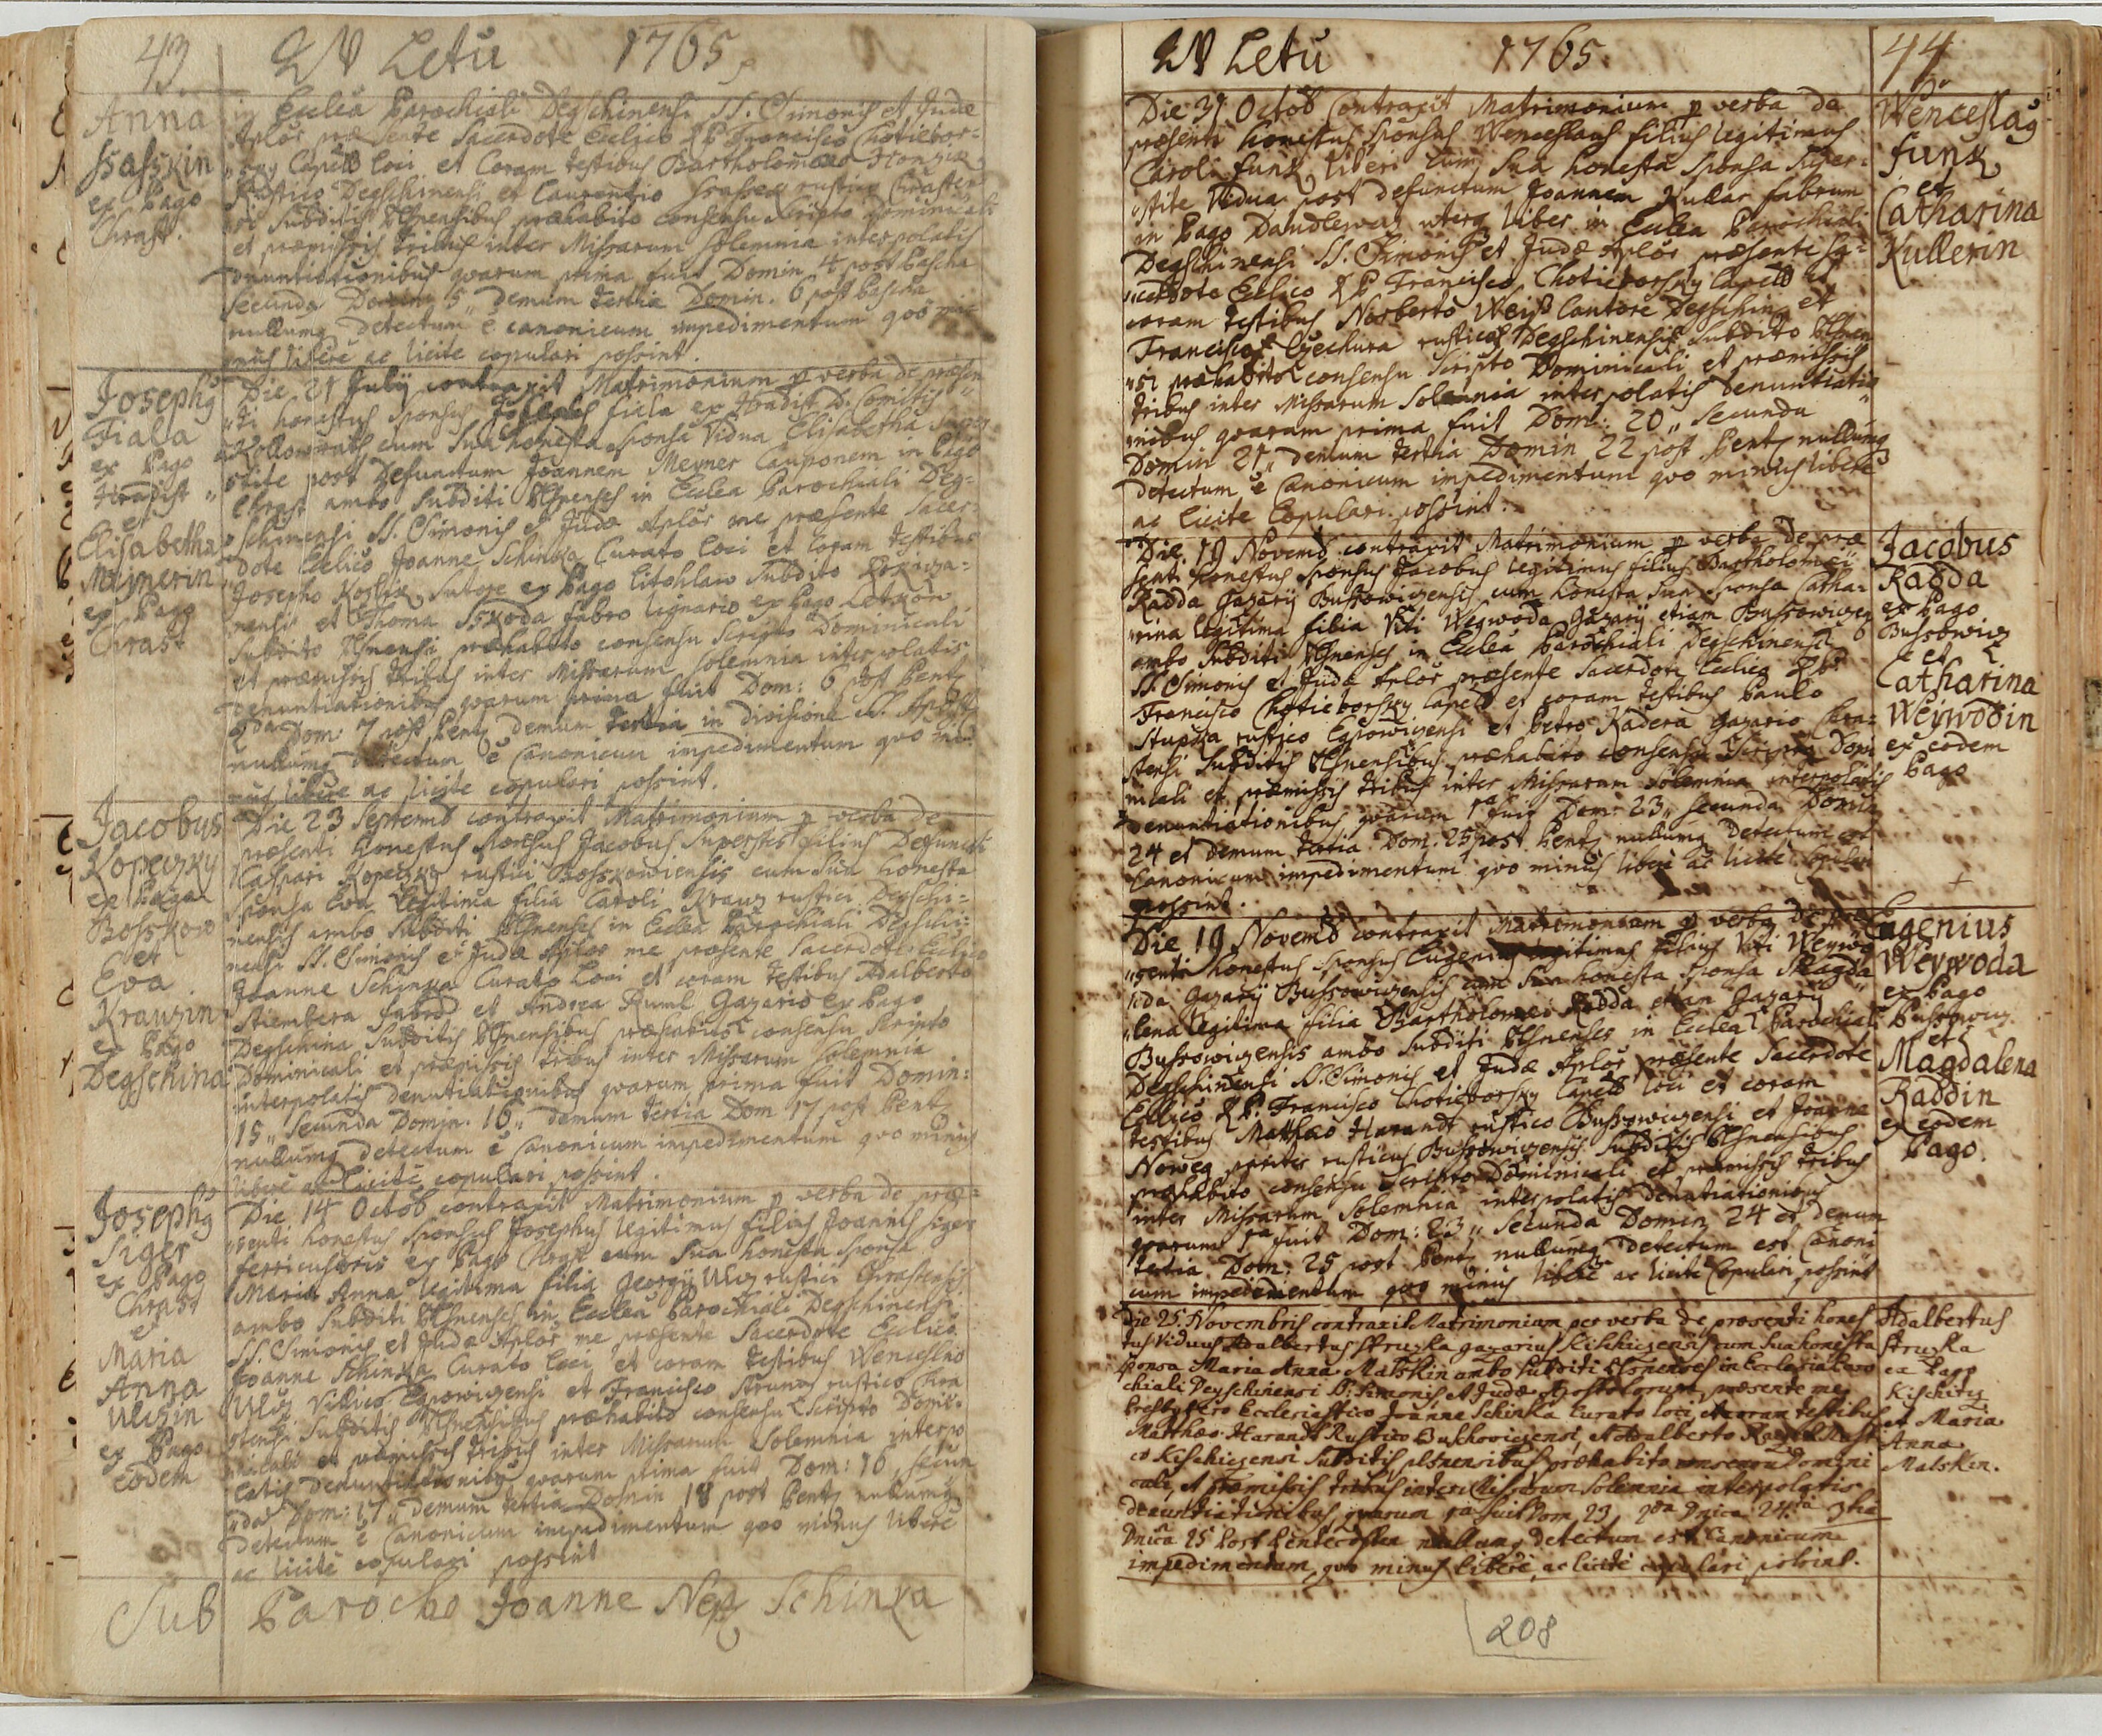 43. W Letu 1765
Anna
Ssasskin
ex Pago
Chrast.
in Ecclea Parochiali Degschinensi SS. Simonis et Judæ
Aplor præsente Sacerdote Ecclico R P Francisco Chotiebor-
sky Capell loci et Coram testibus Bartholomæo
Rustico Degschinensi et Laurentio rustico Chrasten
si Subditis Plsnensibus præhabito consensu Scripto Dominicali
et præmissis tribus inter Missarum Solemnia interpolatis
denuntiationibus quarum prima fuit Domin 4 post Pascha
Secunda Domin 5 demum tertia Domin. 6 post Pascha
nullumq detectum è canonicum impedimentum quo mi
nus liberè ac licite copulari possint.
Josephg
Fiala
ex Pago
Hradist
et
Elisabetha
Majnerin
ex Pago
Chrast
Die 21 Julij contraxit Matrimonium p verba de præsen
ti honestus Sponsus Josephus fiala ex Hradist D. Comitis
Kollowrath cum Sua honesta Sponsa Vidua Elisabetha super
stite post Defunctum Joannem Meyner Cauponem in Pago
Chrast ambo Subditi Plsnenses in Ecclea Parochiali Deg-
schinensi SS. Simonis et Judæ Aplor me præsente Sacer-
dote Ecclico Joanne Schinka Curato loci et coram testibus
Josepho Kozlik Sutore ex Pago Litohlaw Subdito
nensi et Thoma Sskoda fabro lignario ex Pago Letkow
Subdito Plsnensi præhabito consensu Scripto Dominicali
et præmissis tribus inter Missarum Solemnia interpolatis
denuntiationibus quarum prima fuit Dom: 6 post Pent
2da Dom: 7 post Pent demum tertia in divisione SS. Apost
nullumq detectum è Canonicum impedimentum quo mi
nus libere ac licite copulari possint.
Jacobus
Kopeczky
ex Pago
Bosskow
et
Eva
Krauzin
ex Pago
Degschina
Die 23 Septemb contraxit Matrimonium p verba de
præsenti honestus Sponsus Jacobus Superstes filius Defuncti
Kaspari Kopeczky rustici Bosskowiensis cum Sua honesta
Sponsa Eva Legitima filia Caroli Krauz rustici Degschi-
nensis ambo Subditi Plsnenses in Ecclea Parochiali Degschi-
nensi SS. Simonis et Judæ Aplor me præsente Sacerdote Ecclico
Joanne Schinka Curato Loci et coram testibus Adalberto
Stiembera fabro et Andrea Ruml Gazario ex Pago
Degschina Subditis Plsnensibus præhabito consensu Scripto
Dominicali et præmissis tribus inter Missarum Solemnia
interpolatis denuntiationibus quarum prima fuit Domin:
15 Secunda Domin. 16 demum tertia Dom 17 post Pent
nullumq detectum è Canonicum impedimentum quo minus
liberè ac licitè copulari possint.
Josephg
Siger
ex Pago
Chrast
et
Maria
Anna
Ulczin
ex Pago
eodem
Die 14 Octob contraxit Matrimonium p verba de præ-
senti honestus Sponsus Josephus legitimus filius Joannis Siger
ferricustoris ex Pago Chrast cum Sua honesta Sponsa
Maria Anna legitima filia Georgij Ulcz rustici Chrastensis
ambo Subditi Plsnenses in Ecclea Parochiali Degschinensi
SS. Simonis et Judæ Aplor me præsente Sacerdote Ecclico
Joanne Schinka Curato Loci et coram testibus Wenceslao
Ulcz Villico Egrowiczensi et Francisco Strunz rustico Chra
stensi Subditis Plsnensibus præhabito consensu Scripto Domi-
nicali et præmissis tribus inter Missarum Solemnia interpo
latis denuntiationibus quarum prima fuit Dom: 16 Secun
da Dom: 17 demum tertia Domin 18 post Pent nullumq
detectum è Canonicum impedimentum quo minus liberè
ac licitè copulari possint
Sub Parocho Joanne Nep Schinka
W Letu 1765. 44
Die 31 Octob Contraxit Matrimonium p verba de
præsenti honestus Sponsus Wenceslaus filius legitimus
Caroli funk liberi cum Sua honesta Sponsa Super-
stite Vidua post defunctum Joannem Kullar fabrum
in Pago Daudlewcz uterq liber in Ecclea Parochiali
Degschinensi SS. Simonis et Judæ Aplor præsente Sa-
cerdote Ecclico R P Francisco Chotieborsky Capell
coram testibus Norberto Weiß Cantore Degschin et
Francisco Czechura rustico Degschinensis Subdito Plsnen
si præhabito consensu Scripto Dominicali et præmissis
tribus inter Missarum Solemnia interpolatis denuntiatio
nibus quarum prima fuit Dom: 20 Secunda
Domin 21 demum tertia Domin 22 post Pent nullumq
detectum è Canonicum impedimentum quo minus liberè
ac licite Copulari possint.
Wenceslag
funk
et
Catharina
Kullerin
Die 19 Novemb contraxit Matrimonium p verba de præ
senti honestus Sponsus Jacobus legitimus filius Bartholomæi
Radda Gazarij Bussowiczensis cum honesta Sua Sponsa Catha-
rina legitima filia Viti Weywoda Gazarij etiam Bussowiczen
ambo Subditi Plsnenses in Ecclea Parochiali Degschinensi
SS. Simonis et Judæ Aplor præsente Sacerdote Ecclico R P
Francisco Chotieborsky Capell et coram testibus Paulo
Stuppa rustico Egrowiczensi et Petro Kadera Gazario Chra-
stensi Subditis Plsnensibus præhabito consensu Scripto Domi
nicali et præmissis tribus inter Missarum Solemnia interpolatis
denuntiationibus quarum 1ma fuit Dom: 23 Secunda Domin
24 et demum tertia Dom: 25 post Pent nullumq detectum est
Canonicum impedimentum quo minus libere ac licitè Copulari
possint.
Jacobus
Radda
ex Pago
Bussowicz
et
Catharina
Weiwodin
ex eodem
Pago
Die 19 Novemb contraxit Matrimonium p verba de præ
senti honestus Sponsus Eugenius legitimus filius Viti Weywo
da Gazarij Bussowiczensis cum Sua honesta Sponsa Magda
lena legitima filia Bartholomei Radda etiam Gazarij
Bussowiczensis ambo Subditi Plsnenses in Ecclea Parochiali
Degschinensi SS. Simonis et Judæ Aplor præsente Sacerdote
Ecclico R P. Francisco Chotieborsky Capell loci et coram
testibus Matthæo Harandt rustico Bussowiczensi et Joanne
Noweg pariter rusticus Bussowiczensis Subditis Plsnensibus
præhabito consensu Scripto Dominicali et præmissis tribus
inter Missarum Solemnia interpolatis denuntiationibus
quarum 1ma fuit Dom: 23 Secunda Domin 24 et demum
tertia Dom: 25 post Pent nullumq detectum est Canoni
cum impedimentum quo minus liberè ac licitè Copulari possint
Eugenius
Weywoda
ex Pago
Bussowicz
et
Magdalena
Raddin
ex eodem
Pago.
Die 25. Novembris contraxit Matrimonium per verba de præsenti hones
tus Viduus Adalbertus Struzka gazarius Kischiczensis cum Sua honesta
Sponsa Maria Anna Malskin ambo Subditi Plsnenses in Ecclesia Paro
chiali Deyschinensi SS: Simonis et Judæ Apostolorum, præsente me
Presbytero Ecclesiastico Joanne Schinka Curato loci, et coram testibus
Matthæo Harandt Rustico Buschowiczensi, et Adalberto
Kischiczensi Subditis plsnensibus præhabito consensu Domini
cali, et præmissis tribus inter Missarum Solemnia interpolatis
denuntiationibus, quarum 1a fuit Dom 23 2da Dnica 24ta 3tia
Dnica 25 Post Pentecosten nullumq detectum est Canonicum
impedimentum, quo minus liberè, ac licitè copulari possint.
Adalbertus
Struzka
ex Pago
Kischitz
et Maria
Anna
Malskin.
208